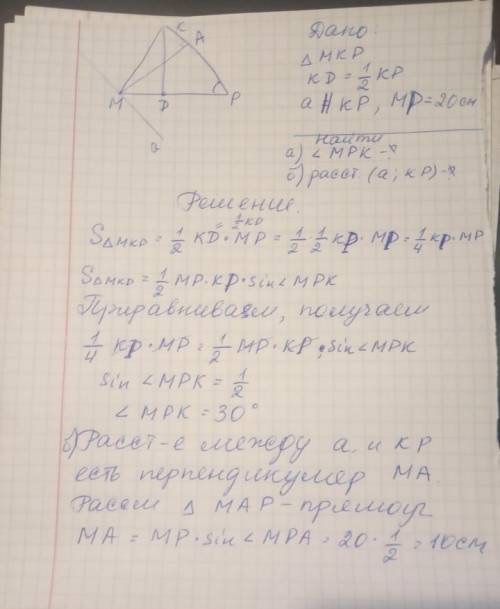 K
A
M
D
P
a
Дано:
△ MKP
KD = 1/2 KP
a ∥ KP, MP = 20 см
Найти
а) ∠ MPK - ?
б) расст. (a; KP) - ?
Решение.
= 1/2 KP
S△MKP = 1/2 KD · MP = 1/2 · 1/2 KP · MP = 1/4 KP · MP
S△MKP = 1/2 MP · KP · sin ∠ MPK
Приравниваем, получаем
1/4 KP · MP = 1/2 MP · KP · sin ∠ MPK
sin ∠ MPK = 1/2
∠ MPK = 30°
б) Расст-е между a и KP
есть перпендикуляр MA.
Рассм △ MAP - прямоуг
MA = MP · sin ∠ MPA = 20 · 1/2 = 10 см